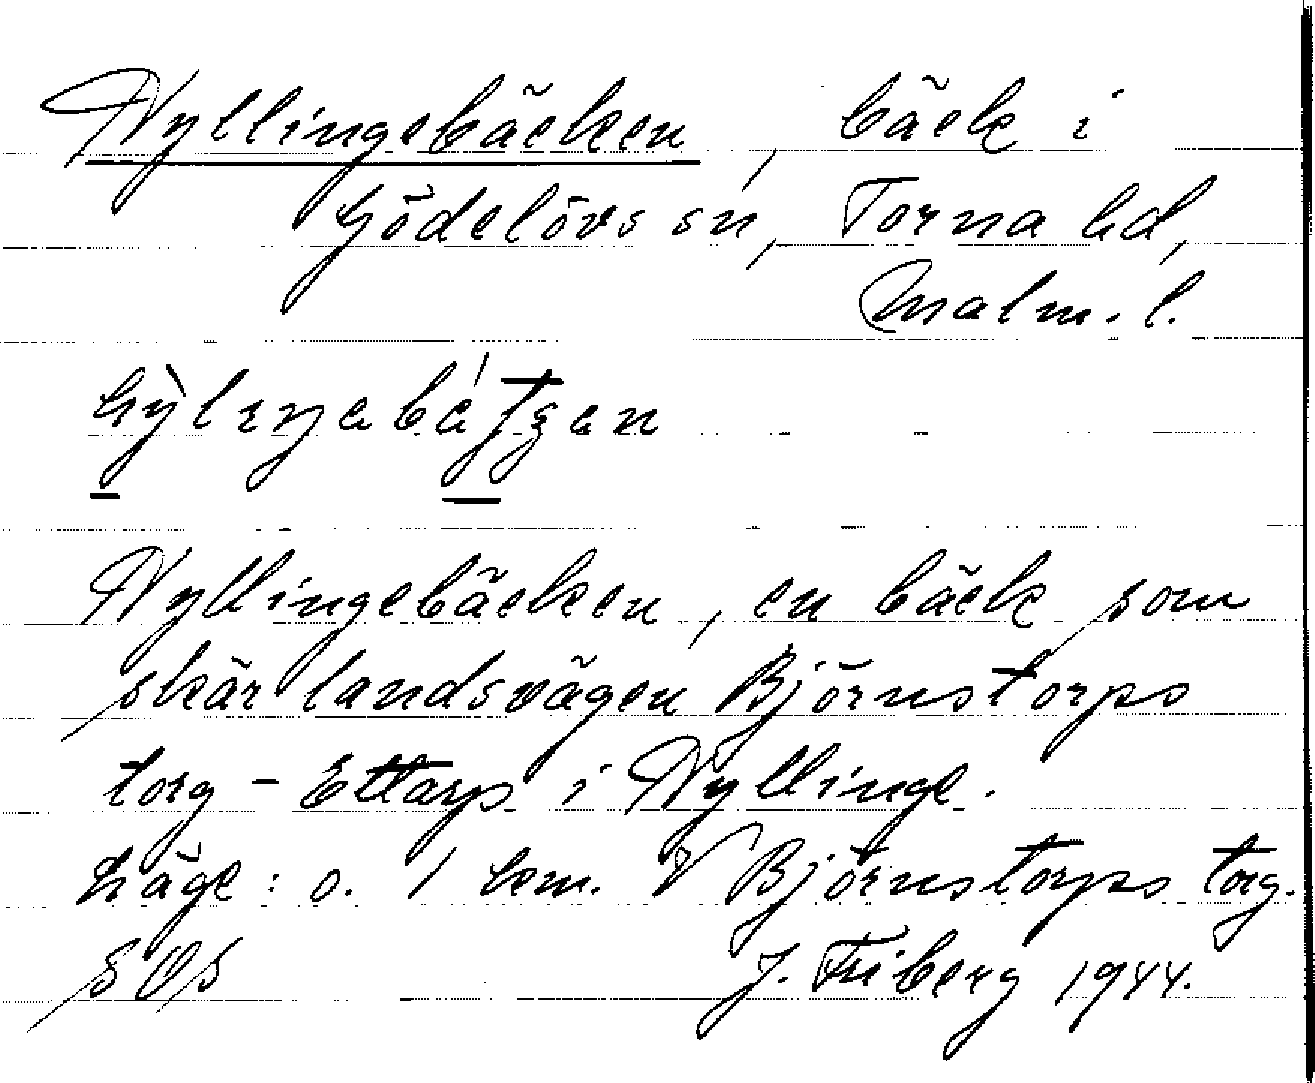 Nyllingebäcken, bäck i
Gödelövs sn, Torna hd,
Malm. l.
Nyllingebäcken, en bäck som
skär landsvägen Björnstorps
torg - Ettarp i Nyllinge.
Läge: o. 1 km. V Björnstorps torg.
SOS J. Friberg 1944.